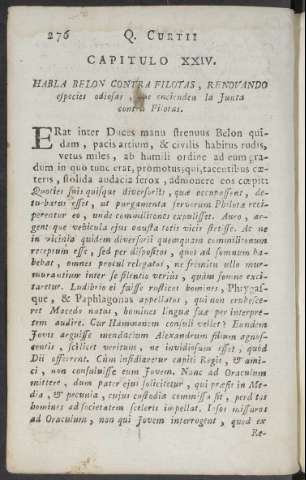 276 Q. CURTII
CAPITULO XXIV.
HABLA BELON CONTRA FILOTAS, RENOVANDO
especies odiosas, que encienden la Junta
contra Filotas.
ERat inter Duces manu strenuus Belon qui-
dam, pacis artium, & civilis habitus rudis,
vetus miles, ab humili ordine ad eum gra-
dum in quo tunc erat, promotus; qui, tacentibus cæ-
teris, stolida audacia ferox, admonere eos cœpit:
Quoties suis quisque diversoriis, quæ occupassent, de-
turbatus esset, ut purgamenta servorum Philotæ reci-
perentur eo, unde commilitones expulisset. Auro, ar-
gentoque vehicula ejus onusta totis vicis stetisse. At ne
in viciniam quidem diversorii quemquam commilitonum
receptum esse, sed per dispositos, quos ad somnum ha-
bebat, omnes procul relegatos, ne fœmina illa mur-
murantium inter se silentio verius, quàm sonno exci-
taretur. Ludibrio ei fuisse rusticos homines, Phrygas-
que, & Paphlagonas appellatos, qui non erubesce-
ret Macedo natus, homines linguæ suæ per interpre-
tem audire. Cur Hammonem consuli vellet? Eundem
Jovis arguisse mendacium Alexandrum filium agnos-
centis, scilicet veritum, ne invidiosum esset, quod
Dii offerrent. Cùm insidiaretur capiti Regis, & ami-
ci, non consuluisse eum Jovem. Nunc ad Oraculum
mittere, dum pater ejus solicitetur, qui præsit in Me-
dia, & pecunia, cujus custodia commissa sit, perditos
homines ad societatem sceleris impellat. Ipsos missuros
ad Oraculum, non qui Jovem interrogent, quod ex
Re-